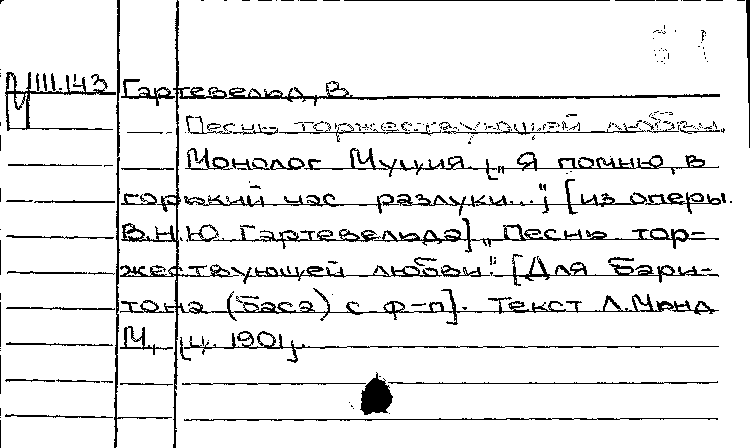 III.143 Гартевельд, В.
Песнь торжествующей любви.
Монолог Муция [„Я помню, в
горький час разлуки..."] [из оперы
В.Н.Ю. Гартевельда] „Песнь тор-
жествующей любви". [Для бари-
тона (баса) с ф-п]. Текст Л. Манд
М., [ц. 1901].